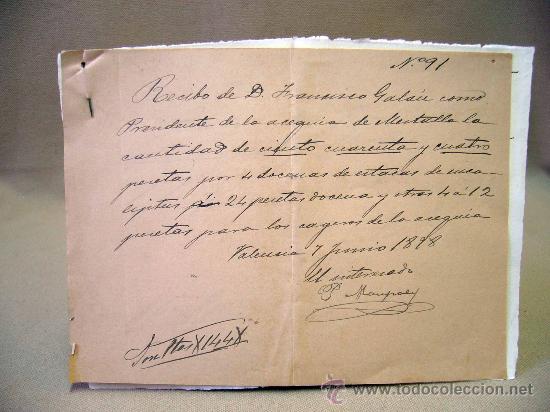 Nº 91
Recibo de D. Francisco Galán como
Presidente de la acequia de Mestalla la
cantidad de ciento cuarenta y cuatro
pesetas por 4 docenas de estacas de euca-
liptus 24 pesetas docena y otras 4 a 12
pesetas para los cageros de la acequia
Valencia 7 Junio 1898
El interesado
Son Ptas X144X
todocoleccion.net